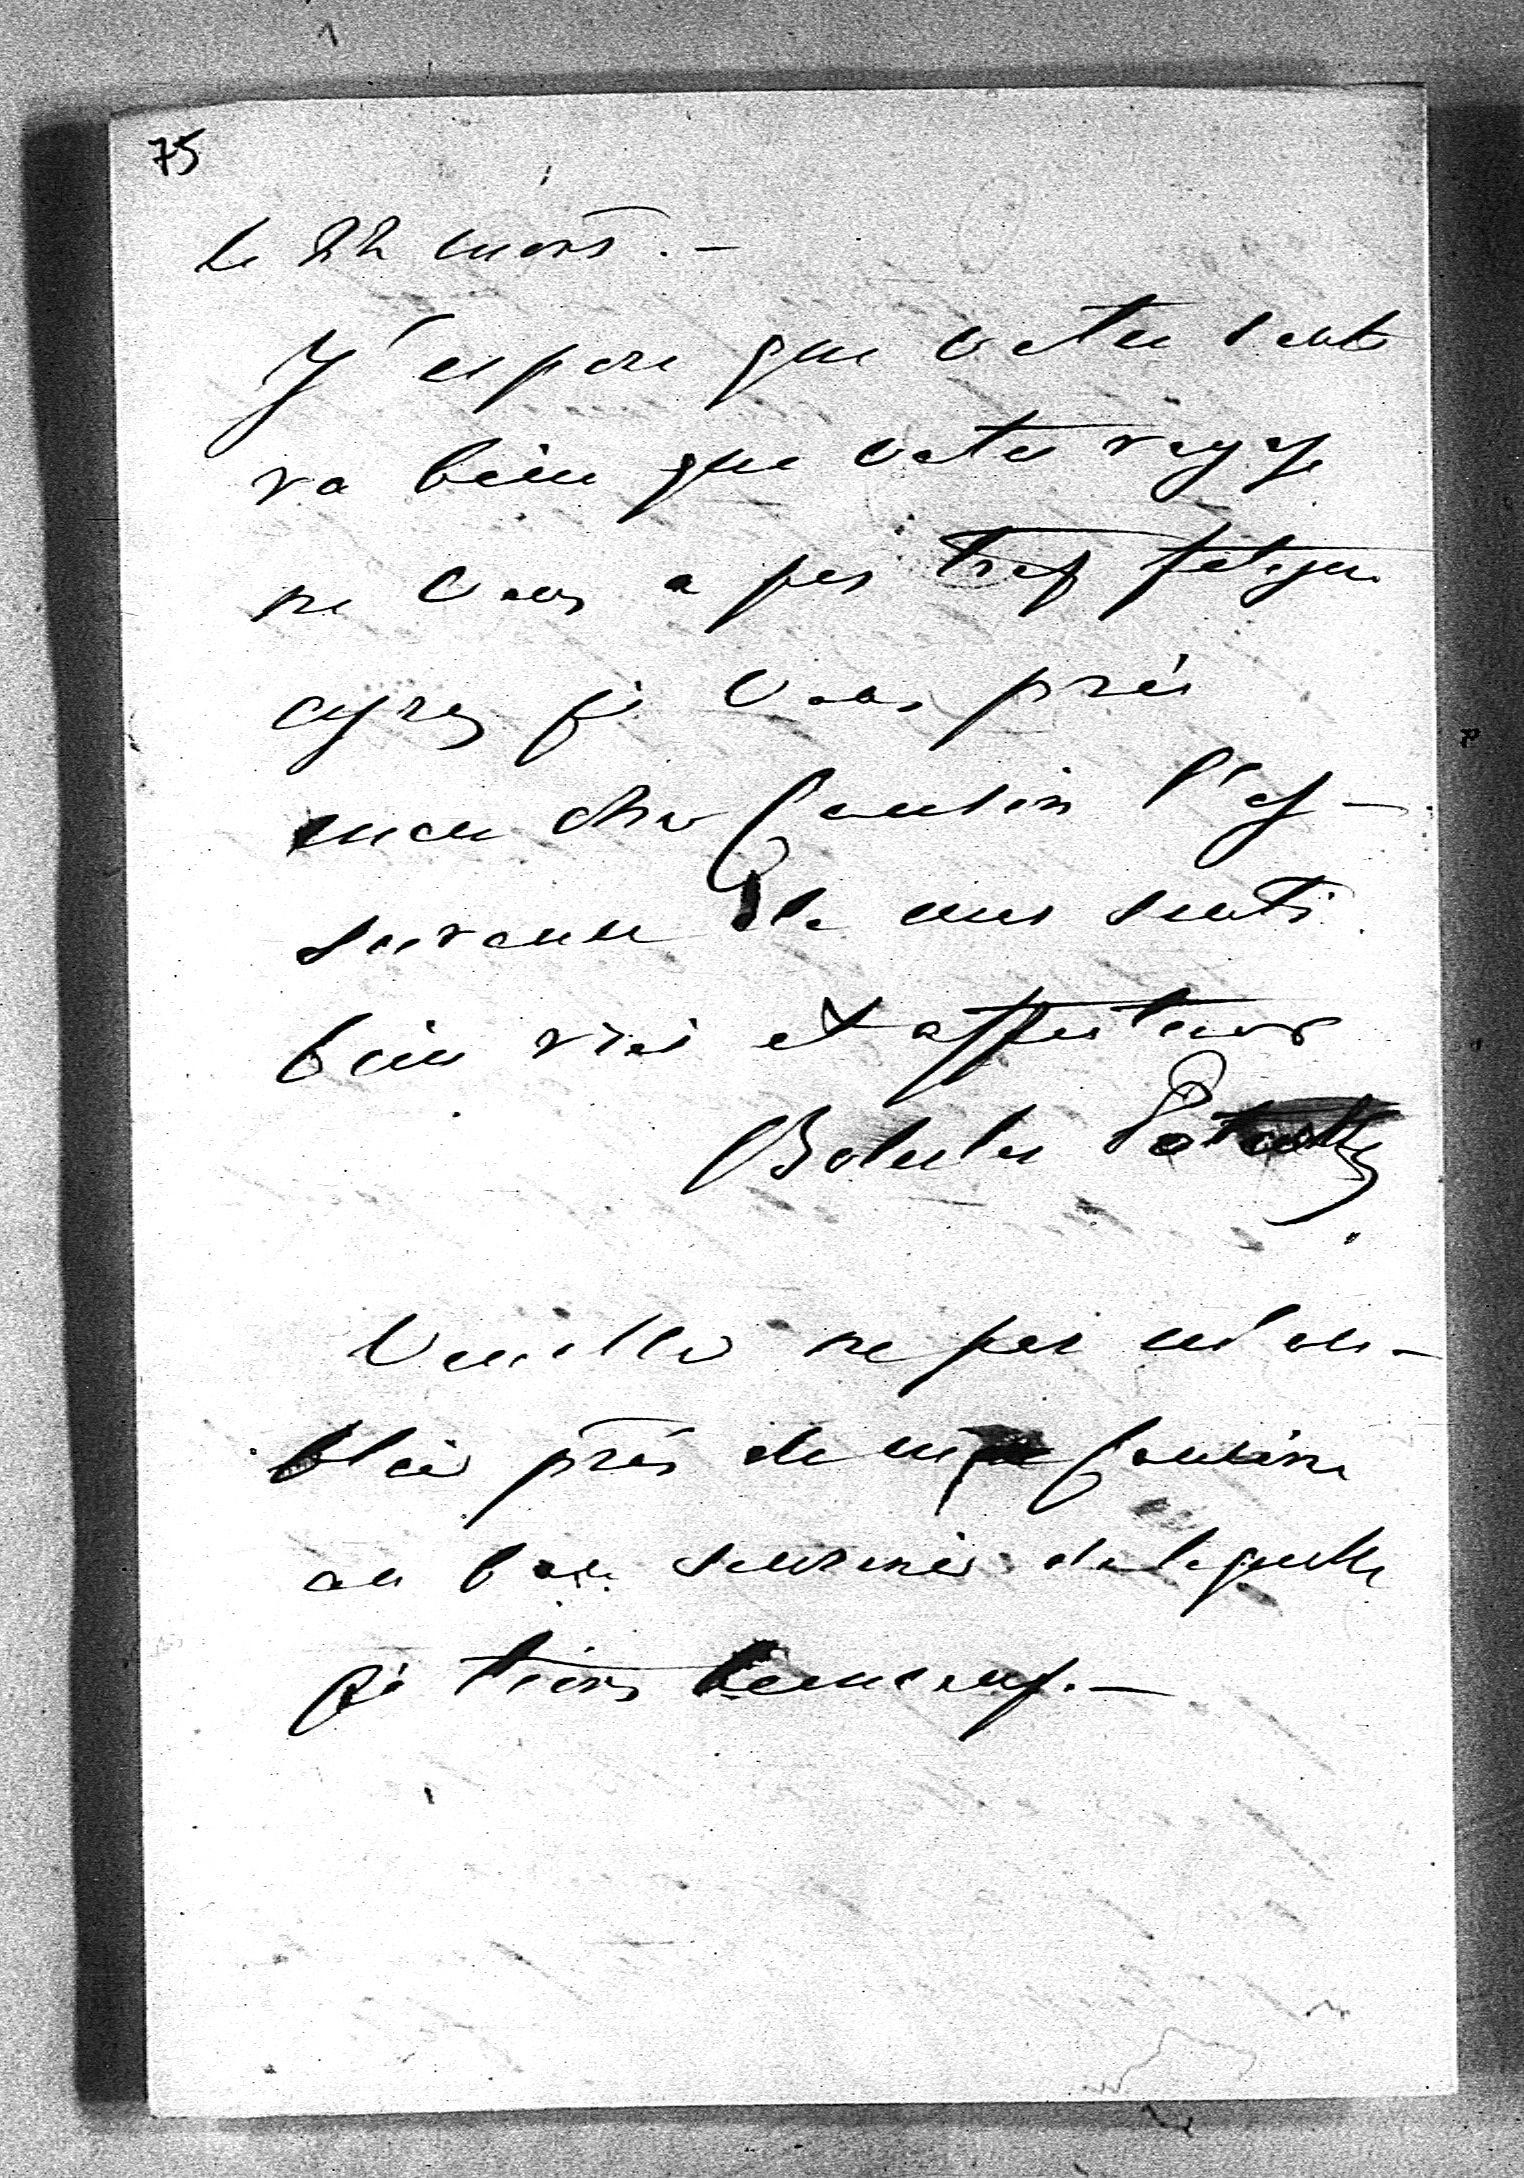 75
le 22 mars. -
J'espere que votre santé
va bien que votre voyage
ne vous a pas trop fatigué
agrez je vous prie
mon cher Cousin l'as-
surance de mes senti
bien vrai et affectueux
Boleslas
Veuillez ne pas m'ou-
blier près de ma Cousine
au bon souvenir de laquelle
je tiens beaucoup. -